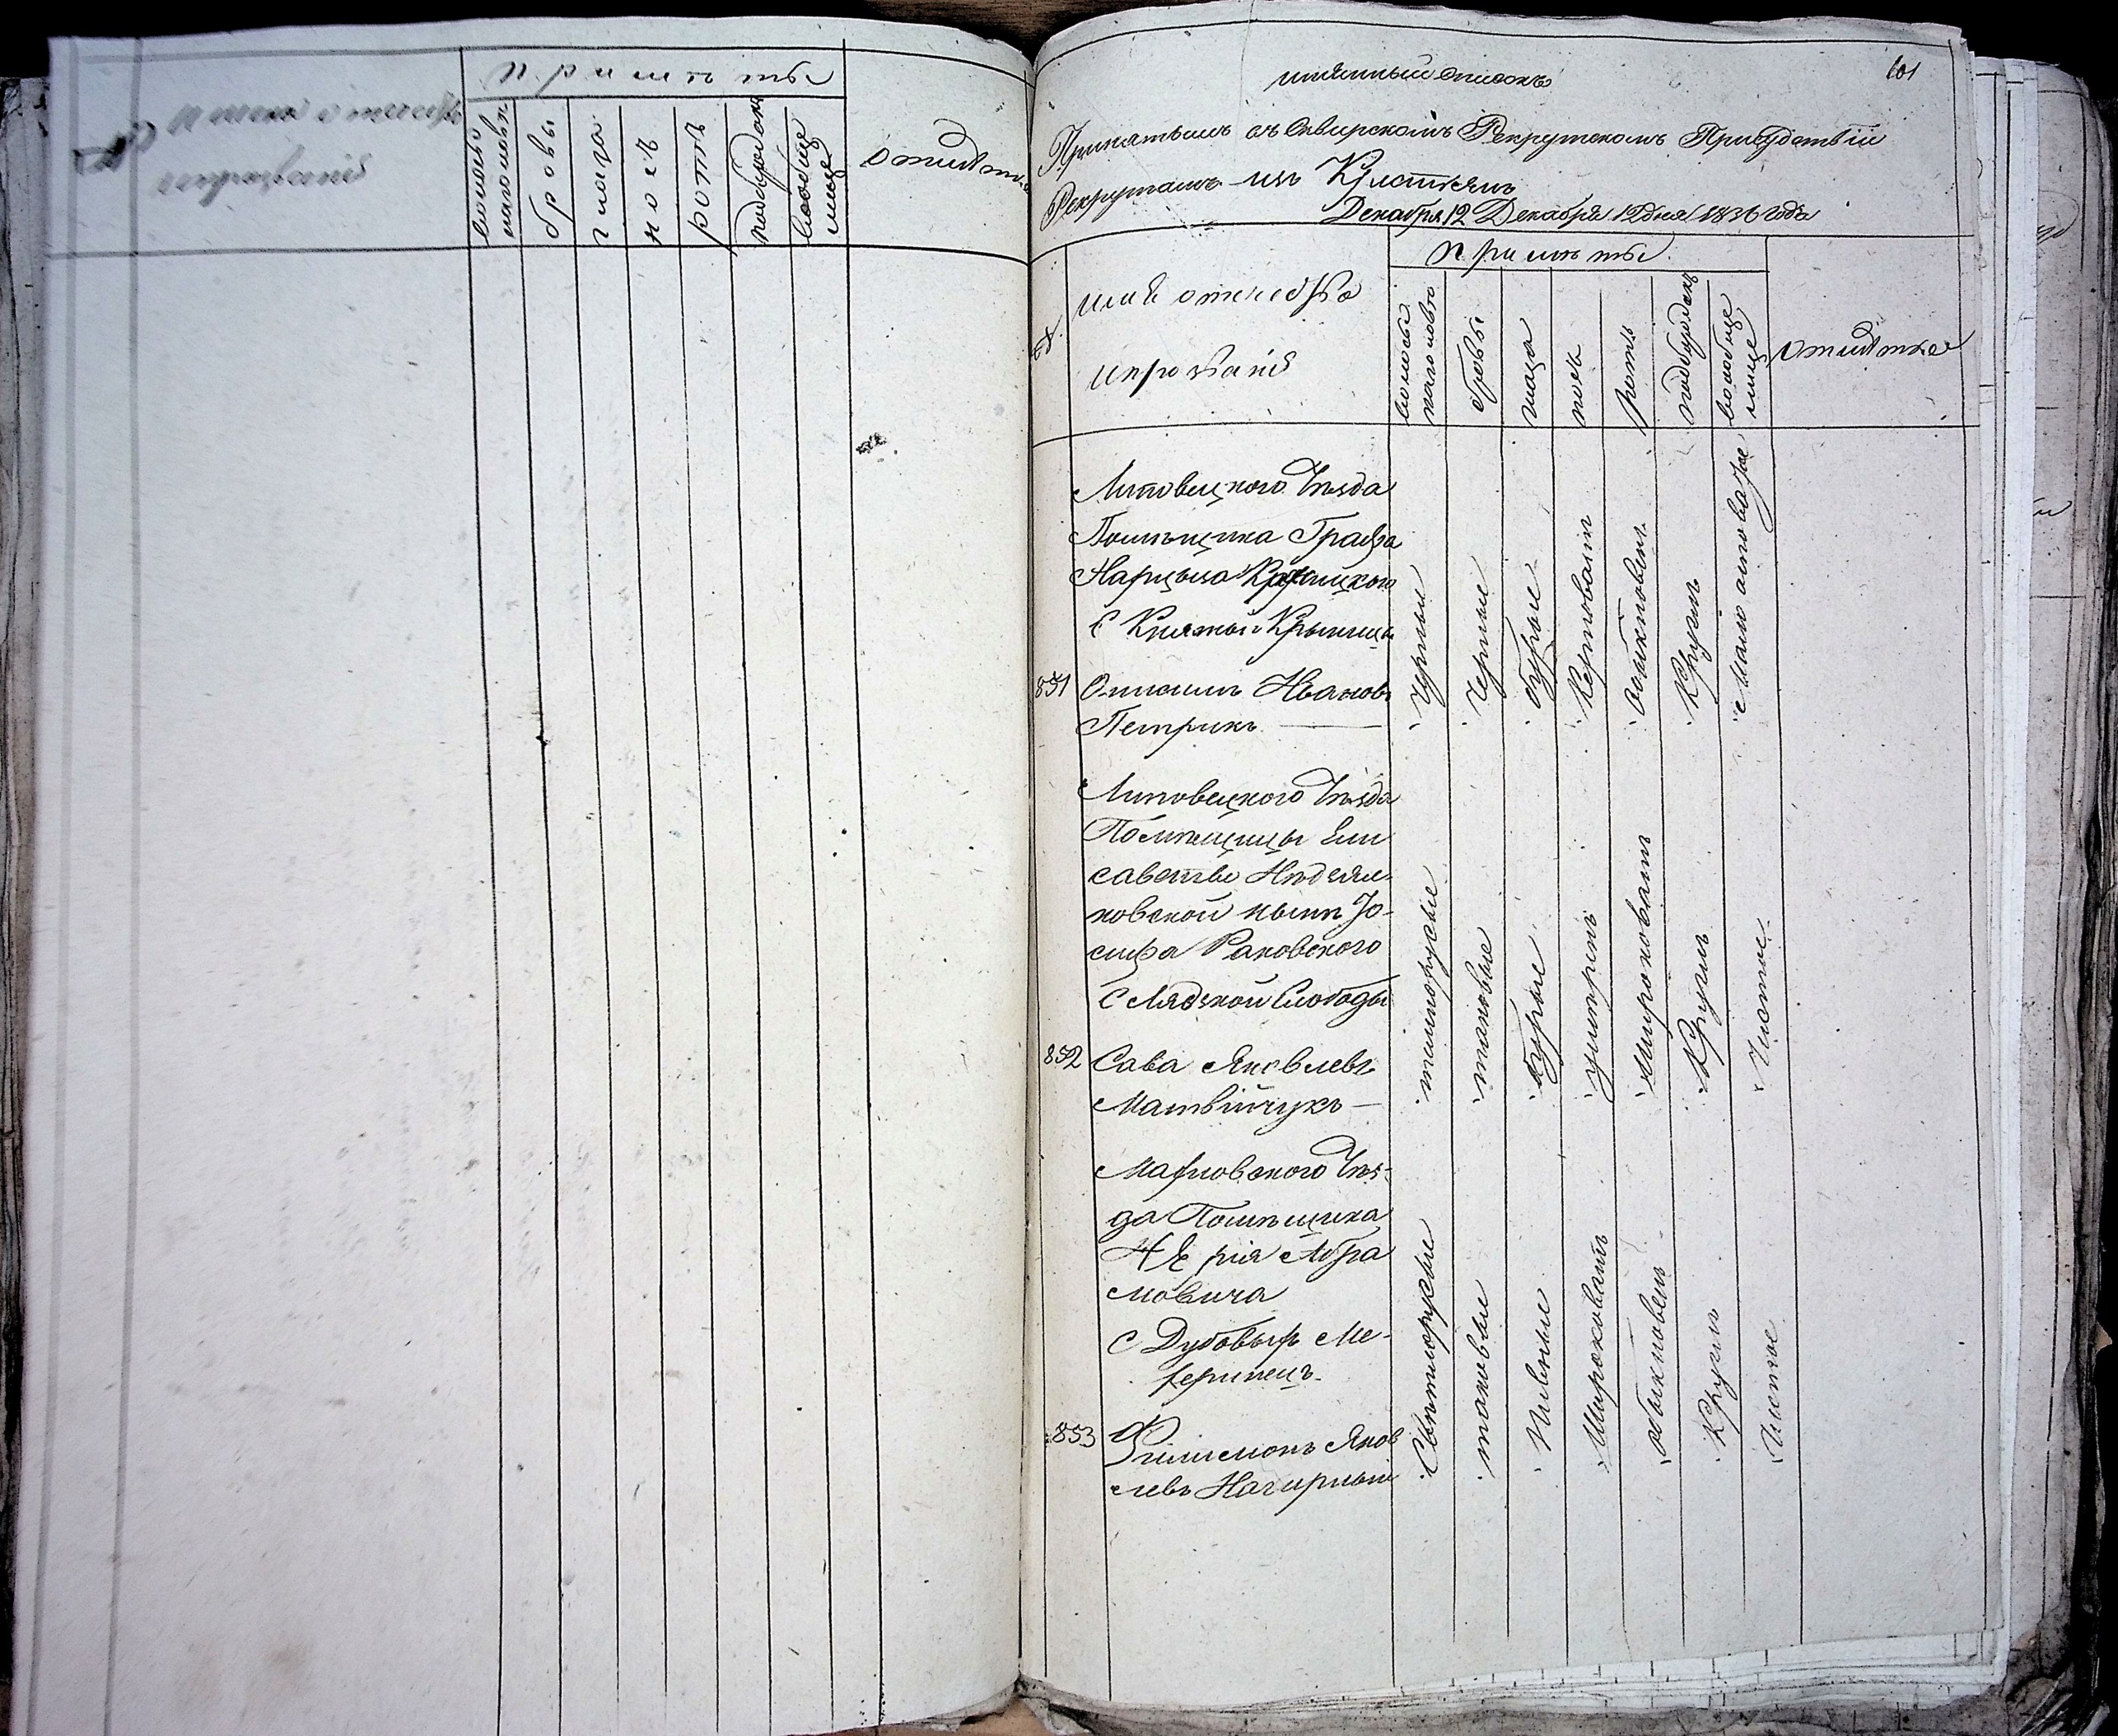 №
Имена отчества
и прозвания
Примѣты
волосы
на головѣ
бровы
глаза
носъ
ротъ
подбородокъ
вообще
лице
отмѣтка
101
имянный списокъ
Принятымъ въ Сквирскомъ Рекрутскомъ Присудствіи
Рекрутамъ изъ Крестьянъ
Декабря 12 Декабря 12 дня 1836 года
№
имя отчество
и прозваніе
примѣты
волосы
на головѣ
бровы
глаза
носъ
ротъ
подбородокъ
вообще
лице
отмѣтка
Липовецкого Уѣзда
Помѣщика Графа
Нарцыза
С Княжый Крыницы
851 Онисимъ Ивановъ
Петрикъ
Черные
Черные
бурые
Керповатъ
обыкновенъ
Круглъ
Мало осповатое
Липовецкого Уѣзда
Помѣщицы Ели
саветы
ковской нынѣ Іо-
сифа Раковского
С Лядской Слободы
852 Сава Яковлевъ
Матвійчукъ
темнорусые
таковые
бурые
умѣренъ
Широковатъ
Круглъ
Чистое
Уѣз-
да Помѣщика
Абра
мовича
С Дубовыхъ Ме-
жеринецъ
853 Филимонъ Яков
левъ Нагирный
Свѣтлорусые
таковые
Пивные
Широковатъ
обыкновенъ
Круглъ
Чистое